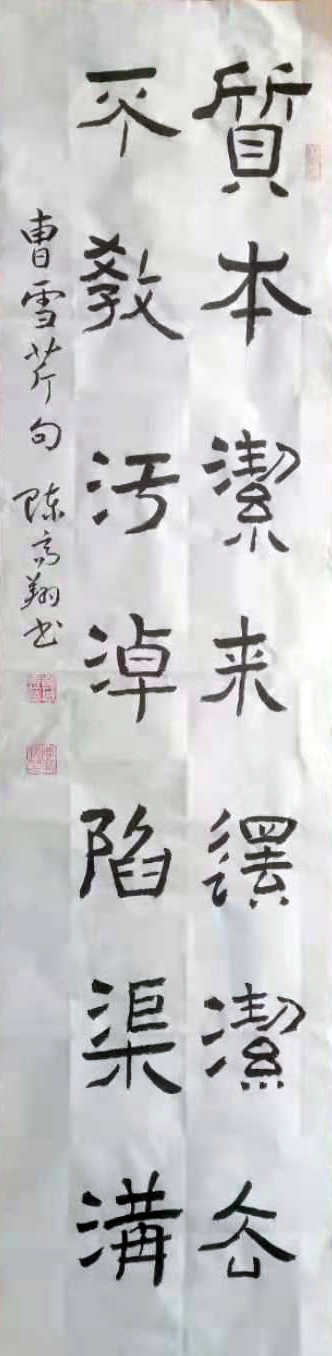 質本潔来還潔厺
不教汚淖陷渠溝
曹雪芹句 陈高翔书